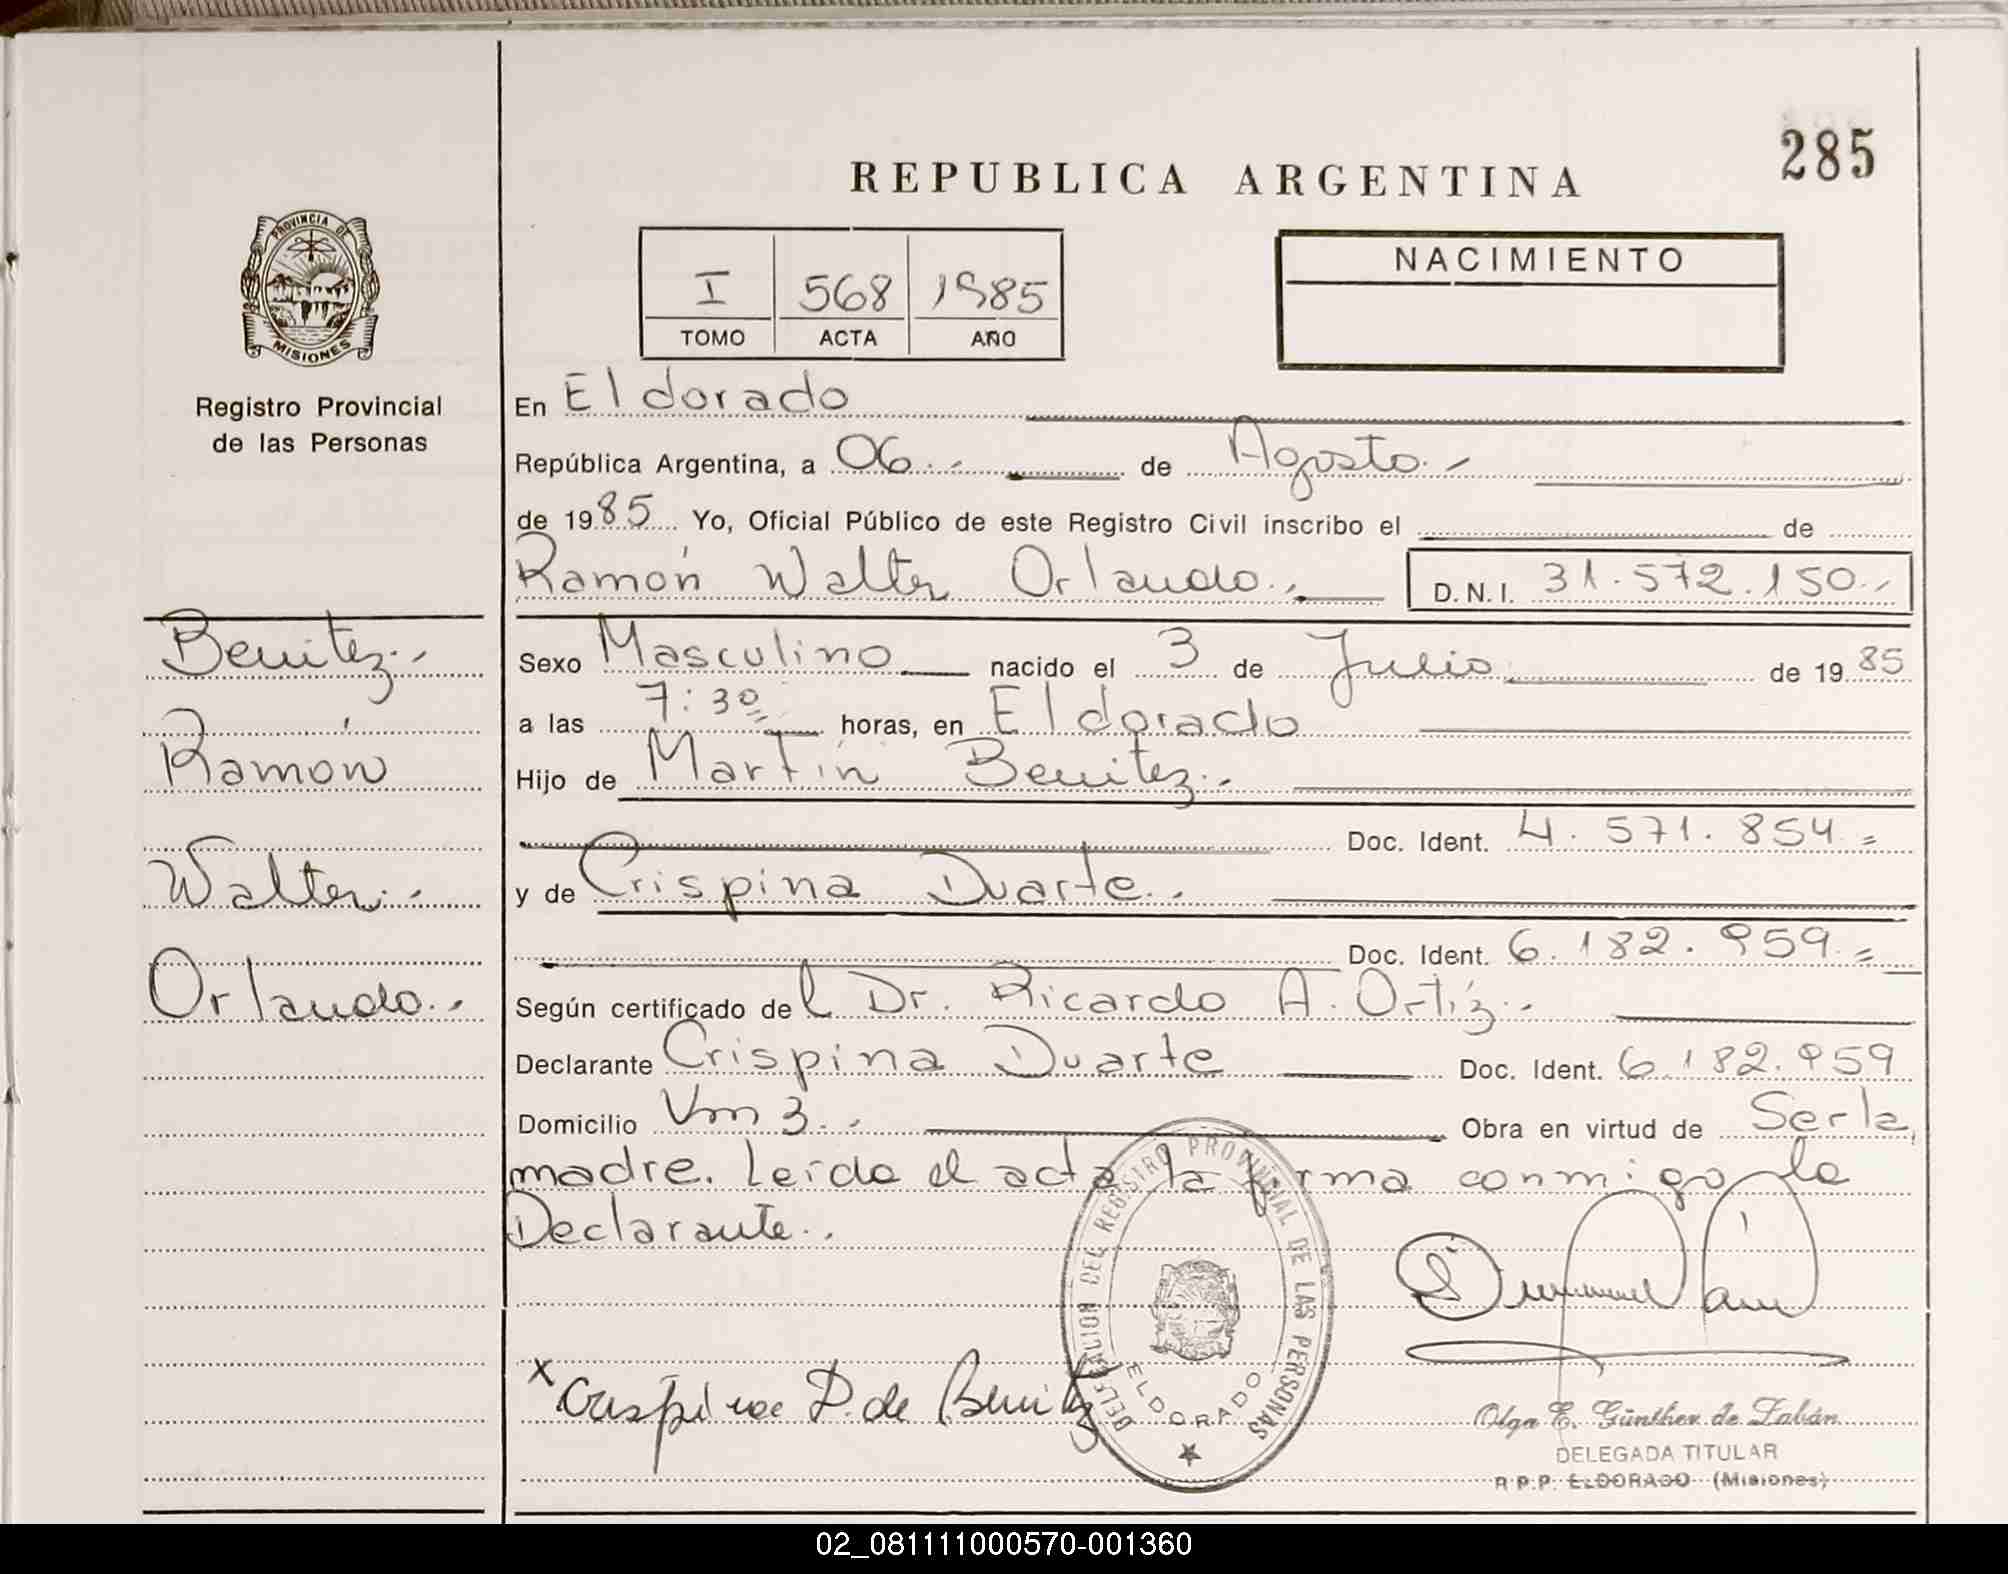 285
REPUBLICA ARGENTINA
PROVINCIA DE
MISIONES
Registro Provincial
de las Personas
I 568 1985
TOMO ACTA AÑO
NACIMIENTO
En Eldorado
República Argentina, a 06.- de Agosto.-
de 1985 Yo, Oficial Público de este Registro Civil inscribo el de
Ramón Walter Orlando.- D.N.I. 31.572.150.-
Benitez.-
Ramón
Walter.-
Orlando.-
Sexo Masculino nacido el 3 de Julio de 1985
a las 7:30 horas, en Eldorado
Hijo de Martín Benitez.-
Doc. Ident. 4.571.854.=
y de Crispina Duarte.-
Doc. Ident. 6.182.959.=
Según certificado del Dr. Ricardo A. Ortíz.-
Declarante Crispina Duarte Doc. Ident. 6.182.959
Domicilio Km 3.- Obra en virtud de Ser la
madre. Leída el acta la firma conmigo la
Declarante.-
DELEGACION DEL REGISTRO PROVINCIAL DE LAS PERSONAS
ELDORADO
x Crispina D. de Benitez
Olga E. Günther de Zabán
DELEGADA TITULAR
R.P.P. ELDORADO (Misiones)
02_081111000570-001360